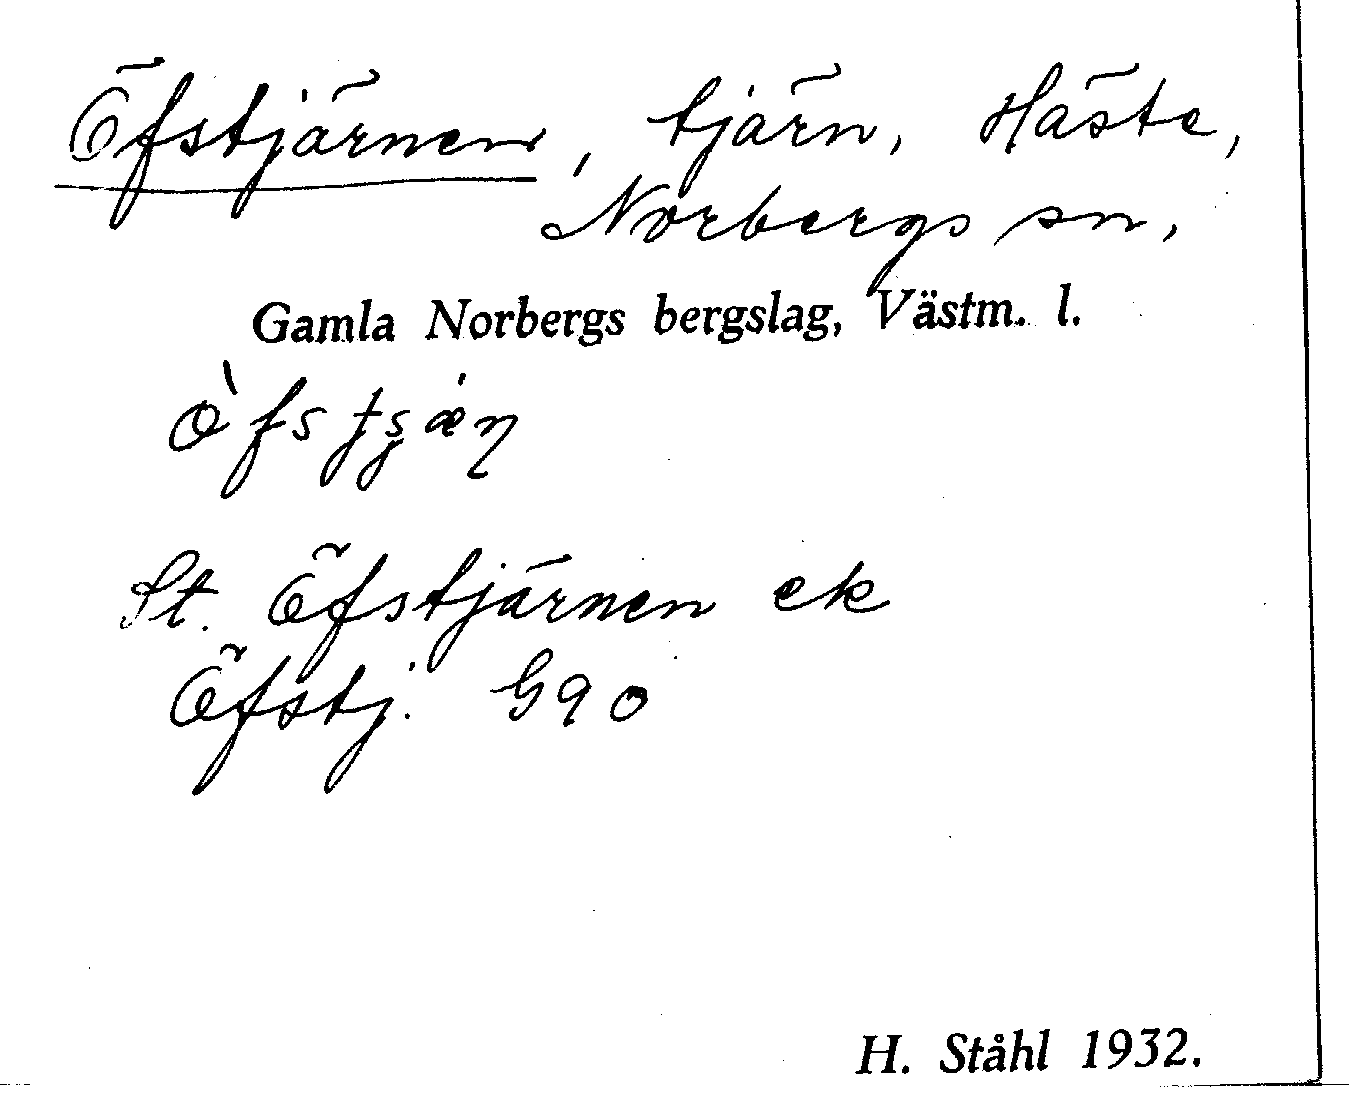 Öfstjärnen, tjärn, Häste,
Norbergs sn,
Gamla Norbergs bergslag, Västm. l.
St. Öfstjärnen ek
Öfstj. G90
H. Ståhl 1932.